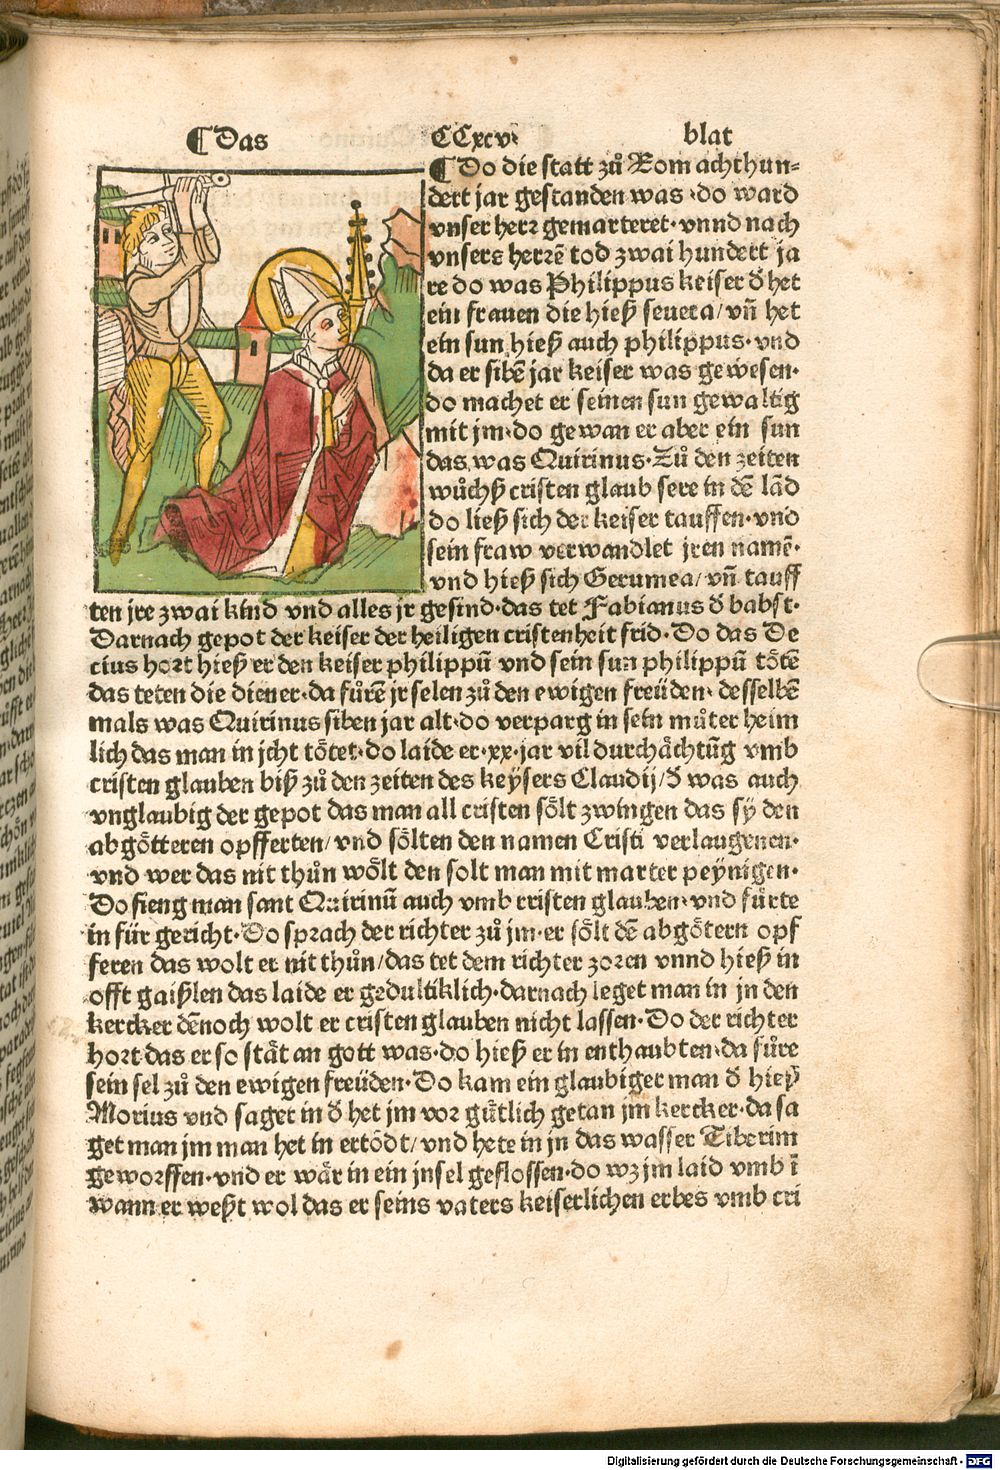 ¶ Das CCxcv blat
¶ Do die statt zů Rom achthun-
dert jar gestanden was · do ward
vnser herr gemarteret · vnnd nach
vnsers herrē tod zwai hundert ja
re do was Philippus keiser d̕ het
ein frauen die hieß seuera / vn̄ het
ein sun hieß auch philippus · vnd
da er sibē jar keiser was gewesen ·
do machet er seinen sun gewaltig
mit jm · do gewan er aber ein sun
das was Quirinus · Zů den zeiten
wůchß cristen glaub sere in dē lād
do ließ sich der keiser tauffen · vnd
sein fraw verwandlet jren namē ·
vnd hieß sich Gerumea / vn̄ tauff
ten jre zwai kind vnd alles jr gesind · das tet Fabianus d̕ babst ·
Darnach gepot der keiser der heiligen cristenheit frid · Do das De
cius hort hieß er den keiser philippū vnd sein sun philippū tötē
das teten die diener · da fůrē jr selen zů den ewigen freüden · desselbē
mals was Quirinus siben jar alt · do verparg in sein můter heim
lich das man in jcht tötet · do laide er · xx · jar vil durchächtūg vmb
cristen glauben biß zů den zeiten des keÿsers Claudij / d̕ was auch
vnglaubig der gepot das man all cristen sölt zwingen das sÿ den
abgötteren opfferten / vnd sölten den namen Cristi verlaugenen ·
vnd wer das nit thůn wölt den solt man mit marter peÿnigen ·
Do fieng man sant Quirinū auch vmb cristen glauben · vnd fůrte
in für gericht · Do sprach der richter zů jm · er sölt dē abgötern opf
feren das wolt er nit thůn / das tet dem richter zoren vnnd hieß in
offt gaißlen das laide er gedultiklich · darnach leget man in jn den
kercker dēnoch wolt er cristen glauben nicht lassen · Do der richter
hort das er so stät an gott was · do hieß er in enthaubten · da fůre
sein sel zů den ewigen freüden · Do kam ein glaubiger man d̕ hieß
Morius vnd saget in d̕ het jm vor gůtlich getan jm kercker · da sa
get man jm man het in ertödt / vnd hete in jn das wasser Tiberim
geworffen · vnd er wär in ein jnsel geflossen · do wz jm laid vmb ī
wann er weßt wol das er seins vaters keiserlichen erbes vmb cri
Digitalisierung gefördert durch die Deutsche Forschungsgemeinschaft - DFG